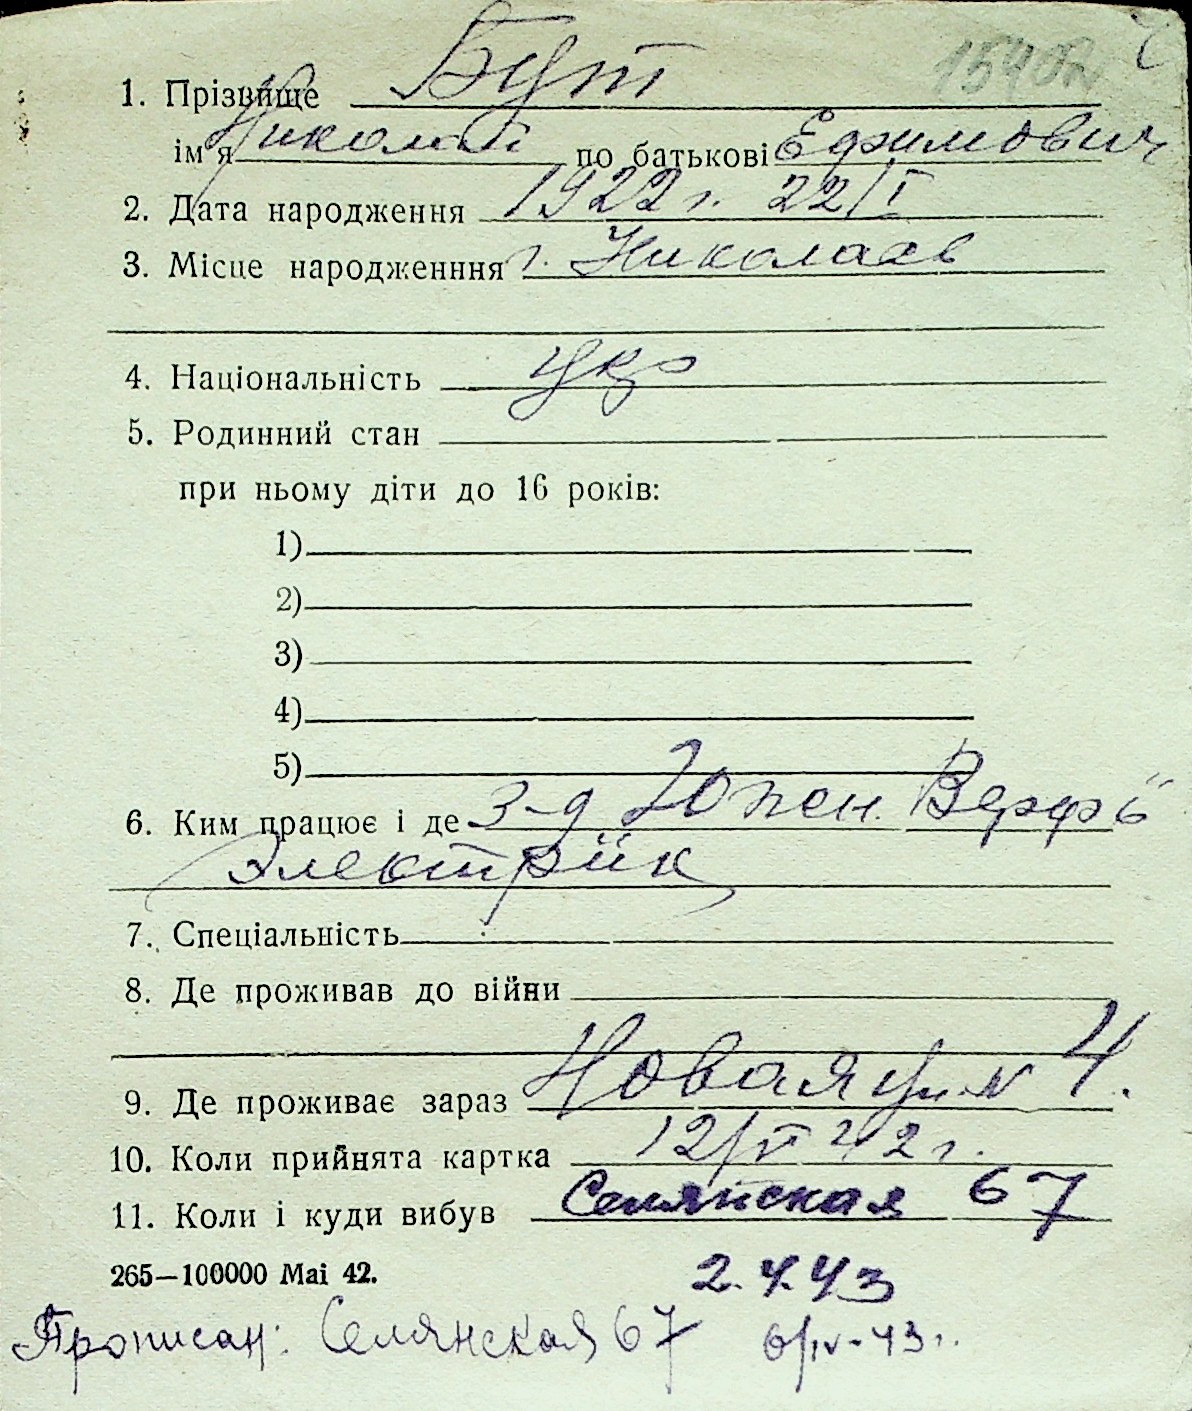 1. Прізвище Бут
ім'я Николай по батькові Ефимович
2. Дата народження 1922 г. 22/I
3. Місце народженння г. Николаев
4. Національність укр
5. Родинний стан
при ньому діти до 16 років:
1)
2)
3)
4)
5)
6. Ким працює і де з-д Южн. Верфь
Электрик
7. Спеціальність
8. Де проживав до війни
9. Де проживає зараз Новая ул. N 4.
10. Коли прийнята картка 12/VI 42 г.
11. Коли і куди вибув Селянская 67
265—100000 Mai 42.
2.4.43
Прописан: Селянская 67 6/IV-43 г.